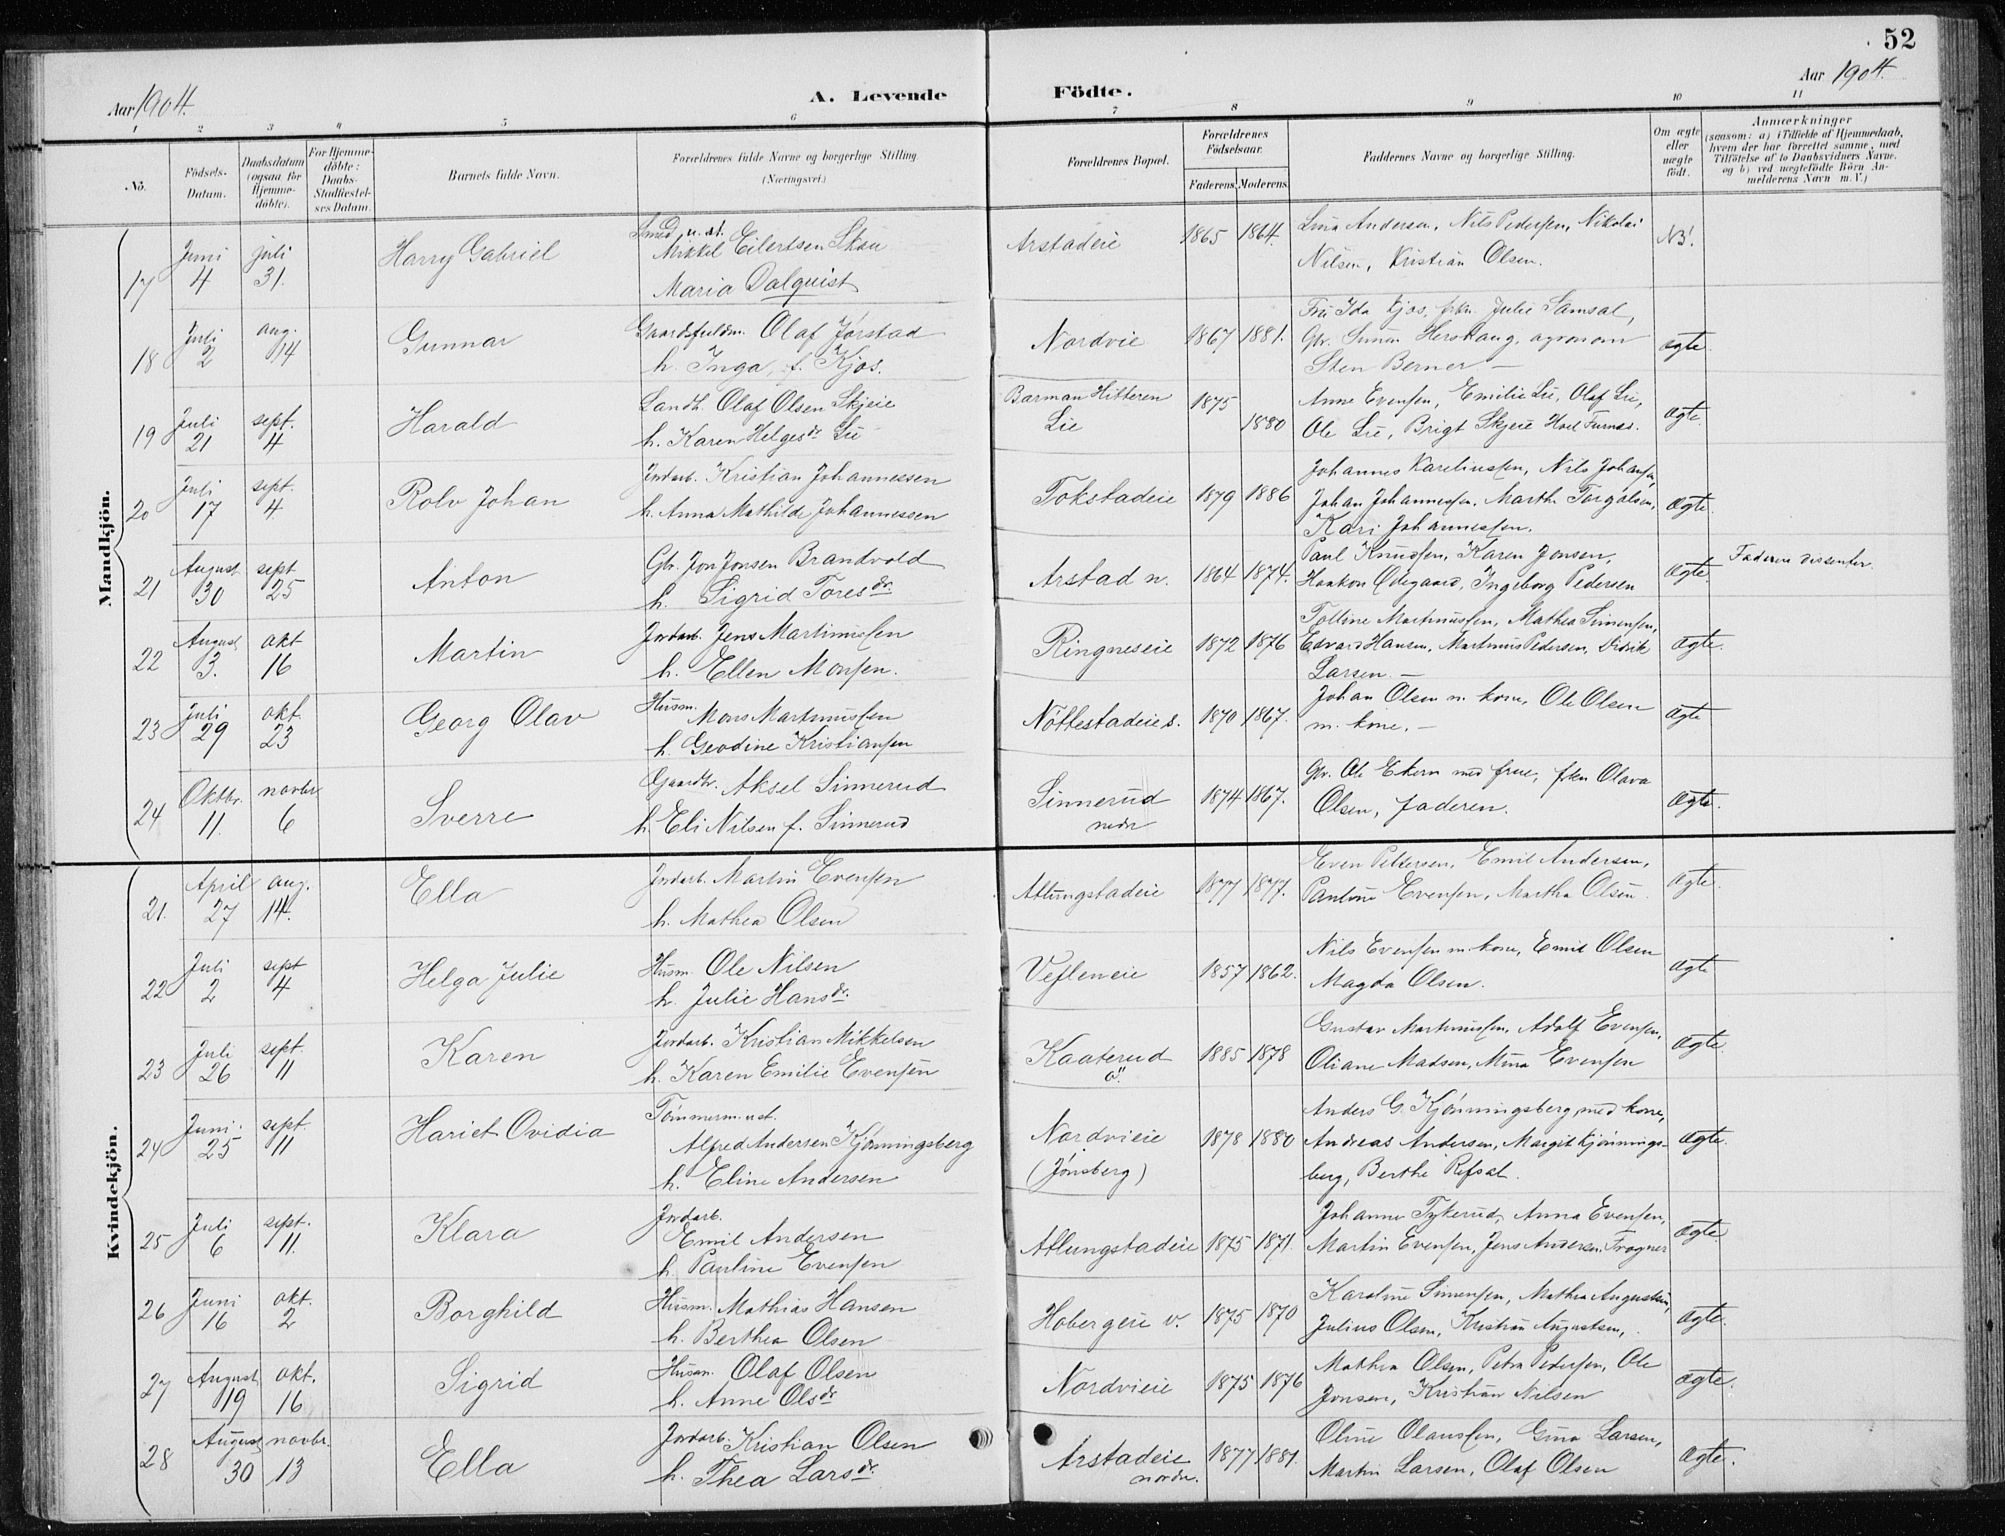 52
Aar 1904.
A. Levende
Fødte.
Aar 1904.
1
2
3
4
5
6
7
8
9
10
11
No.
Fødsels-
Datum.
Daabsdatum
(ogsaa for
Hjemme-
døbte).
For Hjemme-
døbte:
Daabs-
Stadfæstel-
ses Datum.
Barnets fulde Navn.
Forældrenes fulde Navne og borgerlige Stilling
(Næringsvei.)
Forældrenes Bopæl.
Forældrenes
Fødselsaar.
Faderens.
Moderens.
Faddernes Navne og borgerlige Stilling.
Om ægte
eller
uægte
født.
Anmærkninger
(saasom: a) i Tilfælde af Hjemmedaab,
hvem der har forrettet samme, med
Tilføielse af to Daabsvidners Navne.
og b) ved uægtefødte Börn An-
melderens Navn m. V.)
Mandkjön.
17
Juni
4
juli
31.
Harry Gabriel
Smed u. st.
Mikkel Eilertsen Skau
Maria Dalquist
Arstadeie
1865
1864.
Lina Andersen, Nils Pedersen, Nikolai
Nilsen, Kristian Olsen.
N3!
18
Juli
2
aug.
14
Gunnar
Gaardsfuldm. Olaf Jørstad
h. Inga, f. Kjos.
Nordvie
1867
1881.
Fru Ida Kjos, frkn. Julie Samsal,
Gbr. Simen Herskaug, agronom
Sten Berner —
ægte.
19
Juli
21
sept.
4
Harald
Landh. Olaf Olsen Skjeie
h. Karen Helgesdr. Lie
Barman Hitteren
Lie
1875
1880
Anne Evensen, Emilie Lie, Olaf Lie,
Ole Lie, Brigt Skjeie Hoel Furnæs.
ægte.
20
Juli
17
sept.
4
Rolv Johan
Jordarb. Kristian Johannessen
h. Anna Mathilde Johannessen
Tokstadeie
1879
1886
Johannes Karelinssen, Nils Johansen,
Johan Johannessen, Marthe Torgalsen,
Kari Johannessen.
ægte.
21
August
30
sept
25
Anton
Gbr. Jon Jonsen Brandvold
h. Sigrid Toresdr.
Arstad n.
1864
1874.
Paul Knudsen, Karen Jonsen,
Haakon Ødegaard, Ingeborg Pedersen
ægte.
Faderen dissenter.
22
August
3.
okt
16
Martin
Jordarb. Jens Martinussen
h. Ellen Monsen.
Ringneseie
1872
1876
Tolline Martinussen, Mathea Simensen,
Edvard Hansen, Martinus Pedersen, Didrik
Larsen. —
ægte.
23
Juli
29
okt.
23
Georg Olav
Husm.
Mons Martinussen
h. Geodine Kristiansen
Nøttestadeie s.
1870
1867.
Johan Olsen m. kone, Ole Olsen
m. kone. —
ægte
24
Oktbr.
11.
novbr
6
Sverre
Gaardbr. Aksel Sinnerud
h. Eli Nilsen f. Sinnerud
Sinnerud
nedr
1874
1867.
Gbr. Ole Ekern med frue, frkn Olava
Olsen, Faderen.
ægte.
Kvindekjön.
21.
April
27
aug.
14.
Ella
Jordarb. Martin Evensen
h. Mathea Olsen
Atlungstadeie
1877
1877.
Even Pettersen, Emil Andersen,
Pauline Evensen, Martha Olsen.
ægte.
22
Juli
2
sept
4
Helga Julie
Husm. Ole Nilsen
h. Julie Hansdr.
Vefleneie
1857
1862.
Nils Evensen m. kone, Emil Olsen
Magda Olsen.
ægte
23
Juli
26
sept.
11
Karen
Jordarb. Kristian Mikkelsen
h. Karen Emilie Evensen
Kaaterud
ö.
1885
1878
Gustav Martinussen, Adolf Evensen,
Oliane Madsen, Mina Evensen
ægte.
24
Juni.
25
sept.
11
Hariet Ovidia
Tømmerm. ust.
Alfred Andersen Kjønningsberg
h. Eline Andersen
Nordvieie
(Jønsberg)
1878
1880
Anders G. Kjønningsberg med kone,
Andreas Andersen, Margit Kjønnings-
berg, Berthe Refsal.
ægte.
25
Juli
6
sept.
11.
Klara
Jordarb.
Emil Andersen
h. Pauline Evensen
Atlungstadeie
1875
1871.
Johanne Tykerud, Anna Evensen,
Martin Evensen, Jens Andersen Frogner
ægte.
26
Juni
16
okt.
2
Borghild
Husm. Mathias Hansen
h. Berthea Olsen
Hobergeie v.
1875
1870
Karoline Simensen, Mathea Augustsen,
Julius Olsen, Kristian Augustsen,
ægte.
27
August
19
okt.
16
Sigrid
Husm. Olaf Olsen
h. Anne Olsdr
Nordvieie
1875
1876
Mathea Olsen, Petra Pedersen, Ole
Jonsen, Kristian Nilsen
ægte.
28
August
30
novbr.
13
Ella
Jordarb. Kristian Olsen
h. Thea Larsdr.
Arstadeie
nordre.
1877
1881.
Oline Olaussen, Gina Larsen,
Martin Larsen, Olaf Olsen
ægte.